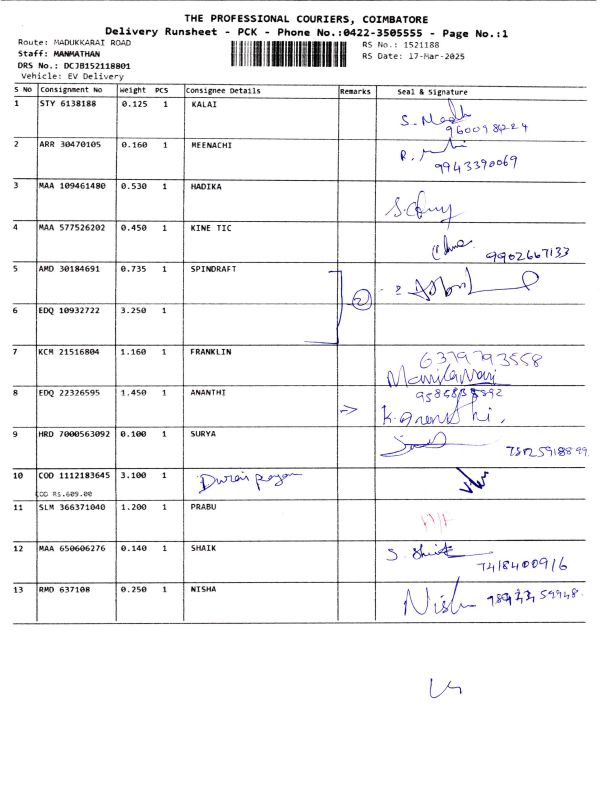 THE PROFESSIONAL COURIERS, COIMBATORE
Delivery Runsheet - PCK - Phone No.:0422-3505555 - Page No.:1
Route: MADUKKARAI ROAD
RS No.: 1521188
Staff: MANMATHAN
RS Date: 17-Mar-2025
DRS No.: DCJB152118801
Vehicle: EV Delivery
S No Consignment No Weight PCS Consignee Details Remarks Seal & Signature
1 STY 6138188 0.125 1 KALAI
2 ARR 30470105 0.160 1 MEENACHI
9943390069
3 MAA 109461480 0.530 1 HADIKA
4 MAA 577526202 0.450 1 KINE TIC
9902667133
5 AMD 30184691 0.735 1 SPINDRAFT
2
6 EDQ 10932722 3.250 1
7 KCM 21516804 1.160 1 FRANKLIN
6379793558
8 EDQ 22326595 1.450 1 ANANTHI
9 HRD 7000563092 0.100 1 SURYA
10 COD 1112183645 3.100 1
COD RS.609.00
11 SLM 366371040 1.200 1 PRABU
12 MAA 650606276 0.140 1 SHAIK
7418400916
13 RMD 637108 0.250 1 NISHA
Nish